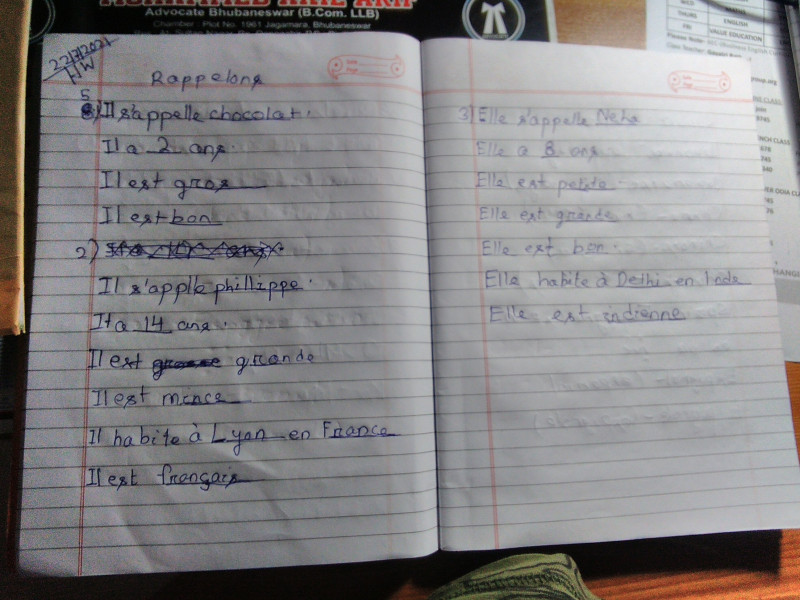 Advocate Bhubaneswar (B.Com. LLB)
Chamber : Plot No. 1961 Jagamara, Bhubaneswar
THURS ENGLISH
FRI VALUE EDUCATION
22/7/2021
HW
Rappelons
5) Il s'appelle chocolat.
Il a 2 ans.
Il est gros
Il est bon
2)
Il s'applle phillippe.
It a 14 ans.
Il est grande
Il est mince
Il habite à Lyon en France
Il est français
3) Elle s'appelle Neha
Elle a 8 ans
Elle est petite.
Elle est grande.
Elle est bon.
Elle habite à Delhi en Inde
Elle est indienne